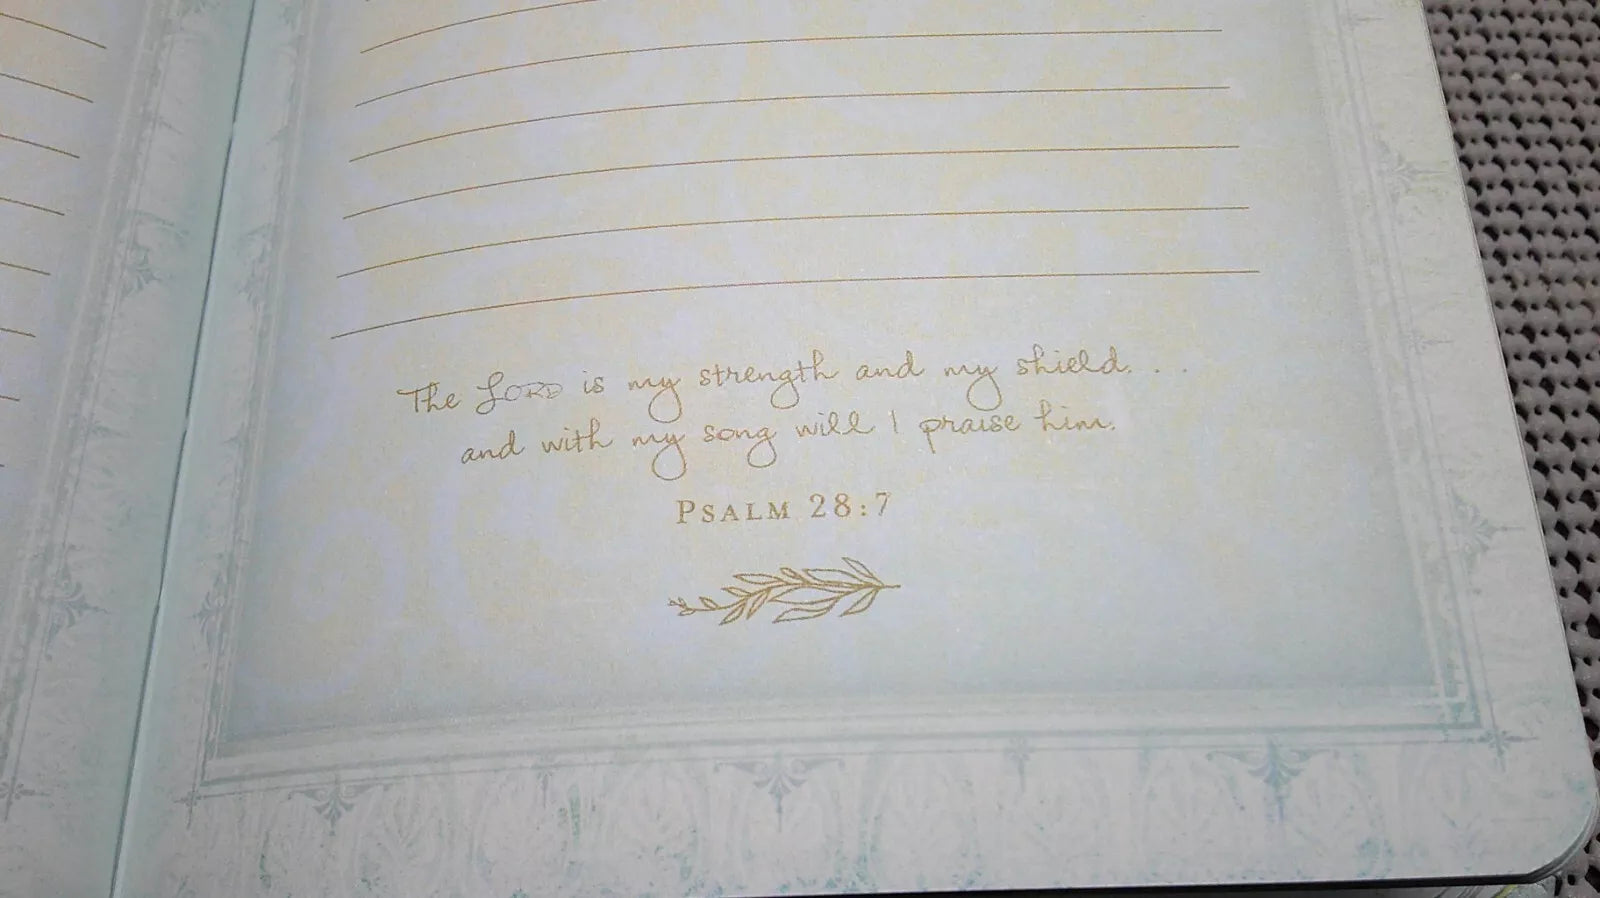 The LORD is my strength and my shield. . .
and with my song will I praise him.
PSALM 28:7